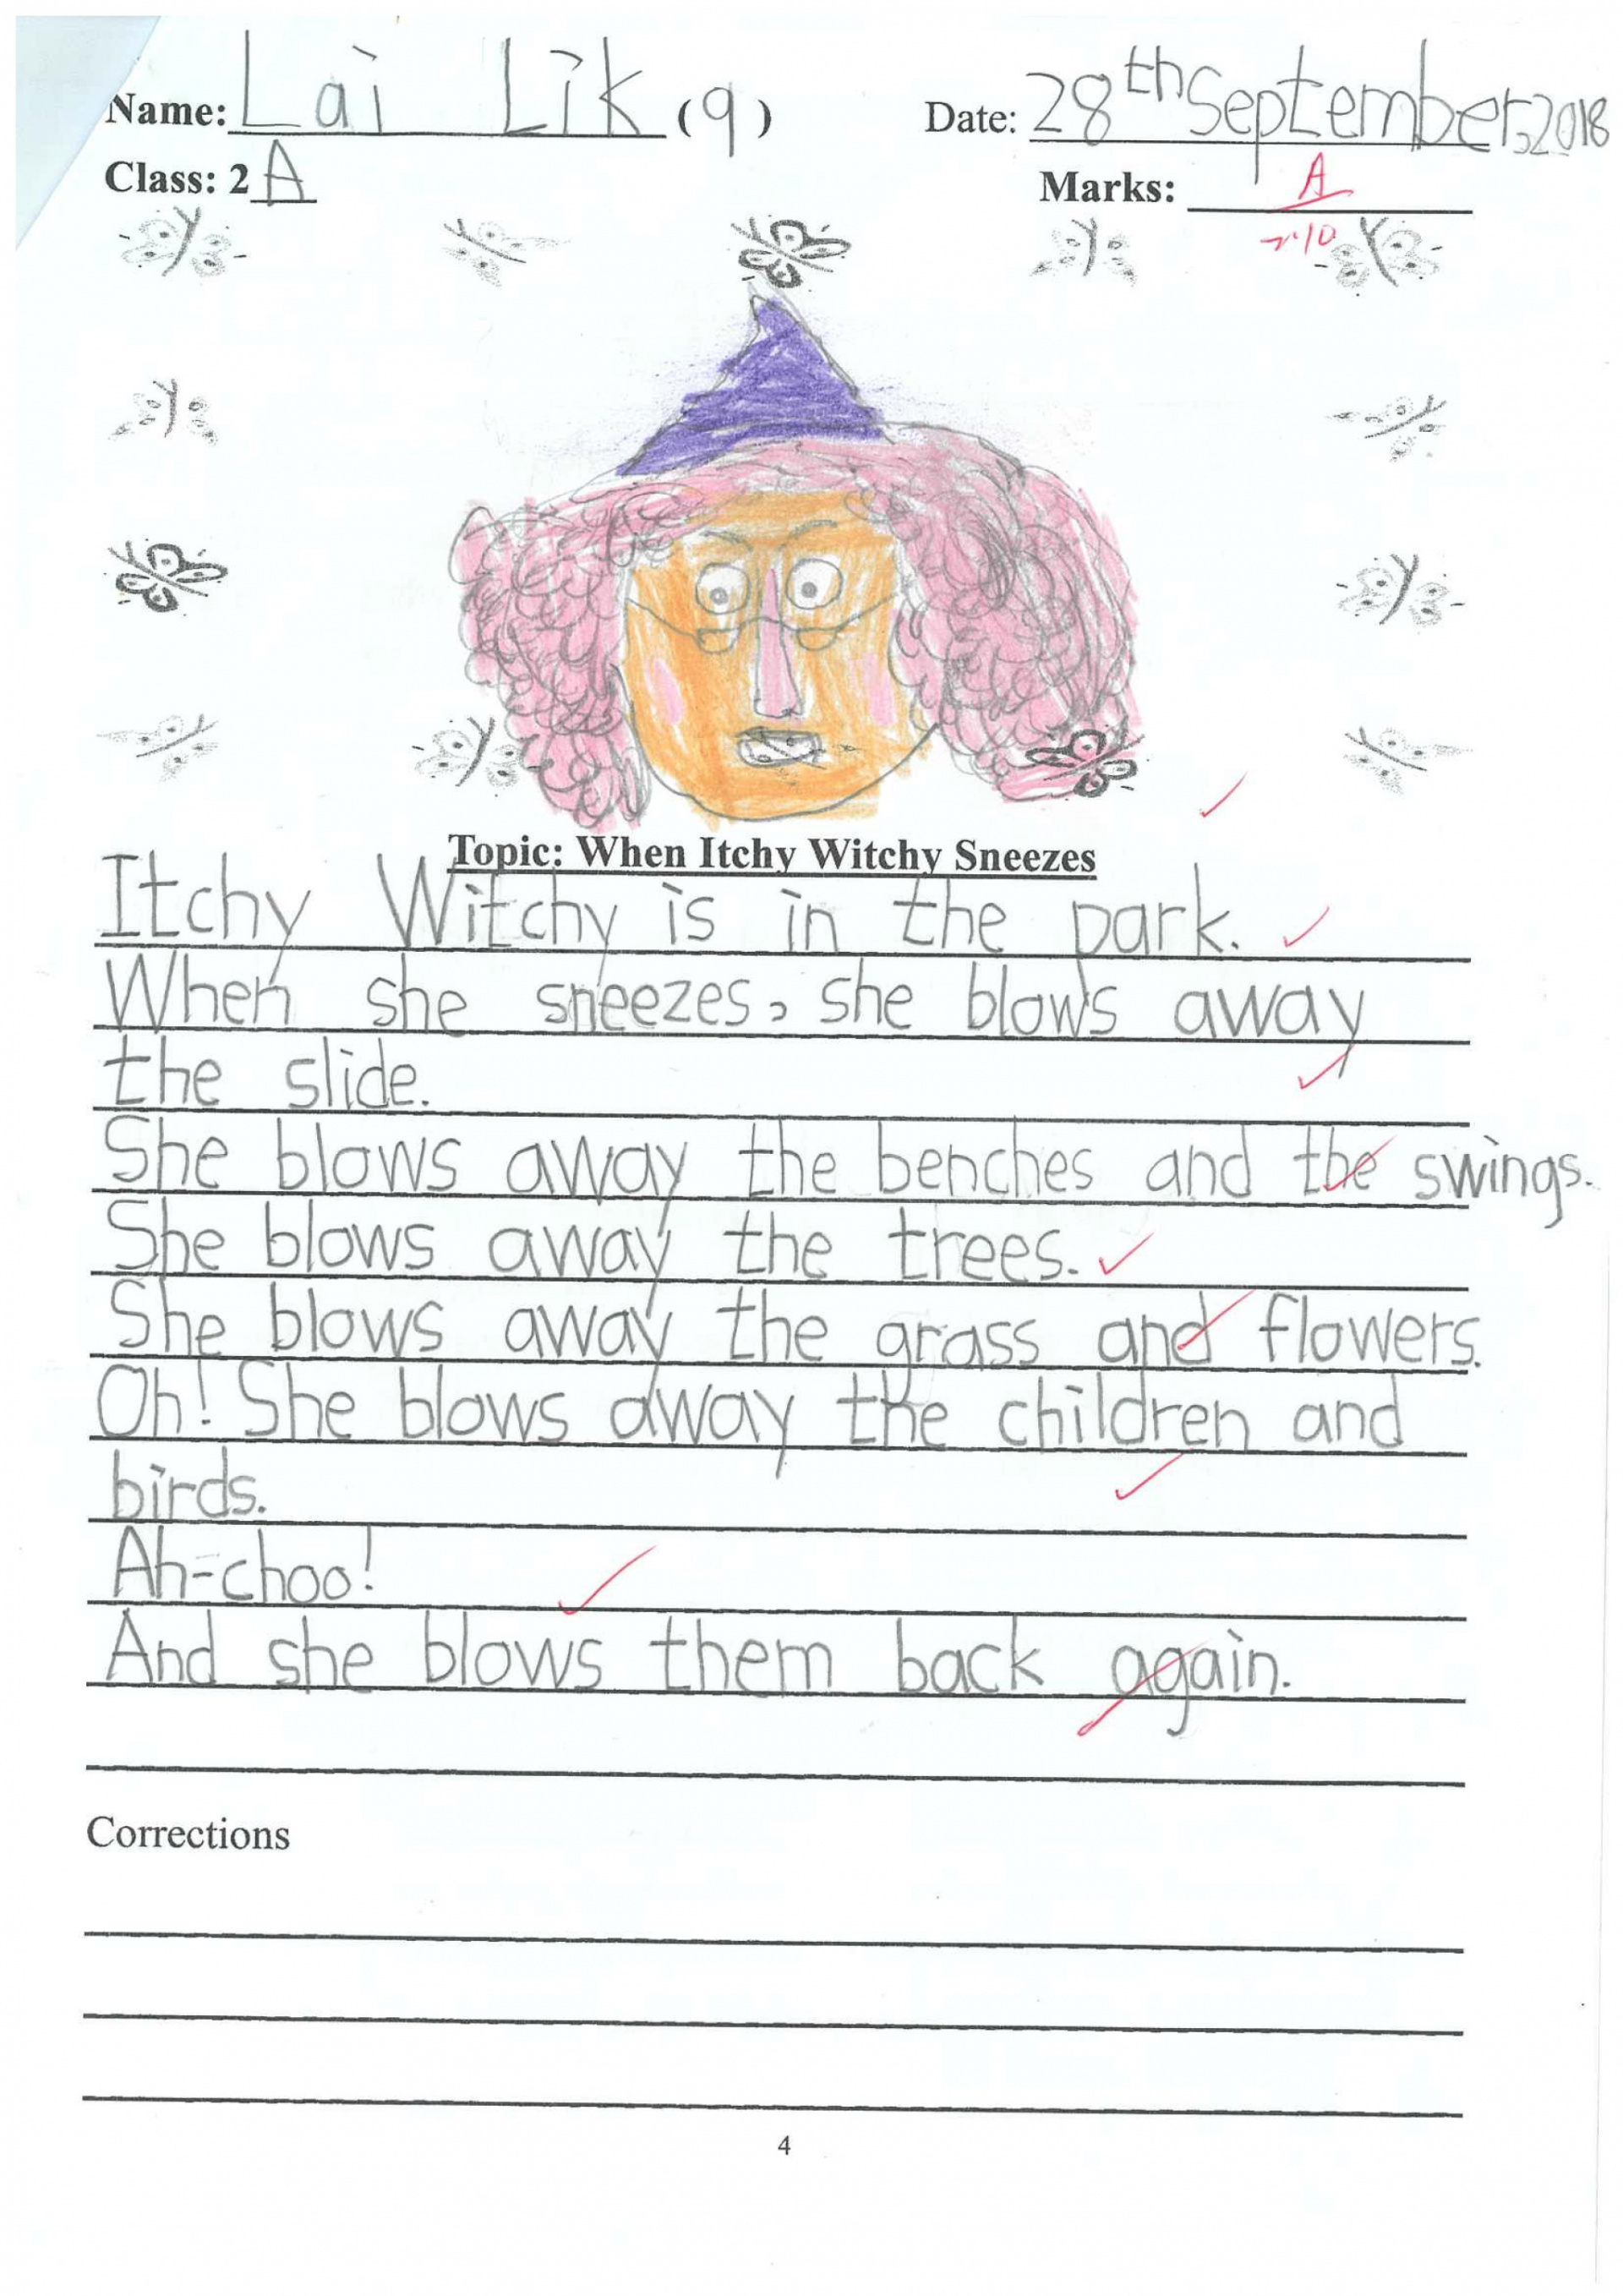 Name: Lai Lik (9) Date: 28th September, 2018
Class: 2 A Marks: A
Topic: When Itchy Witchy Sneezes
Itchy Witchy is in the park.
When she sneezes, she blows away
the slide.
She blows away the benches and the swings.
She blows away the trees.
She blows away the grass and flowers.
Oh! She blows away the children and
birds.
Ah-choo!
And she blows them back again.
Corrections
4